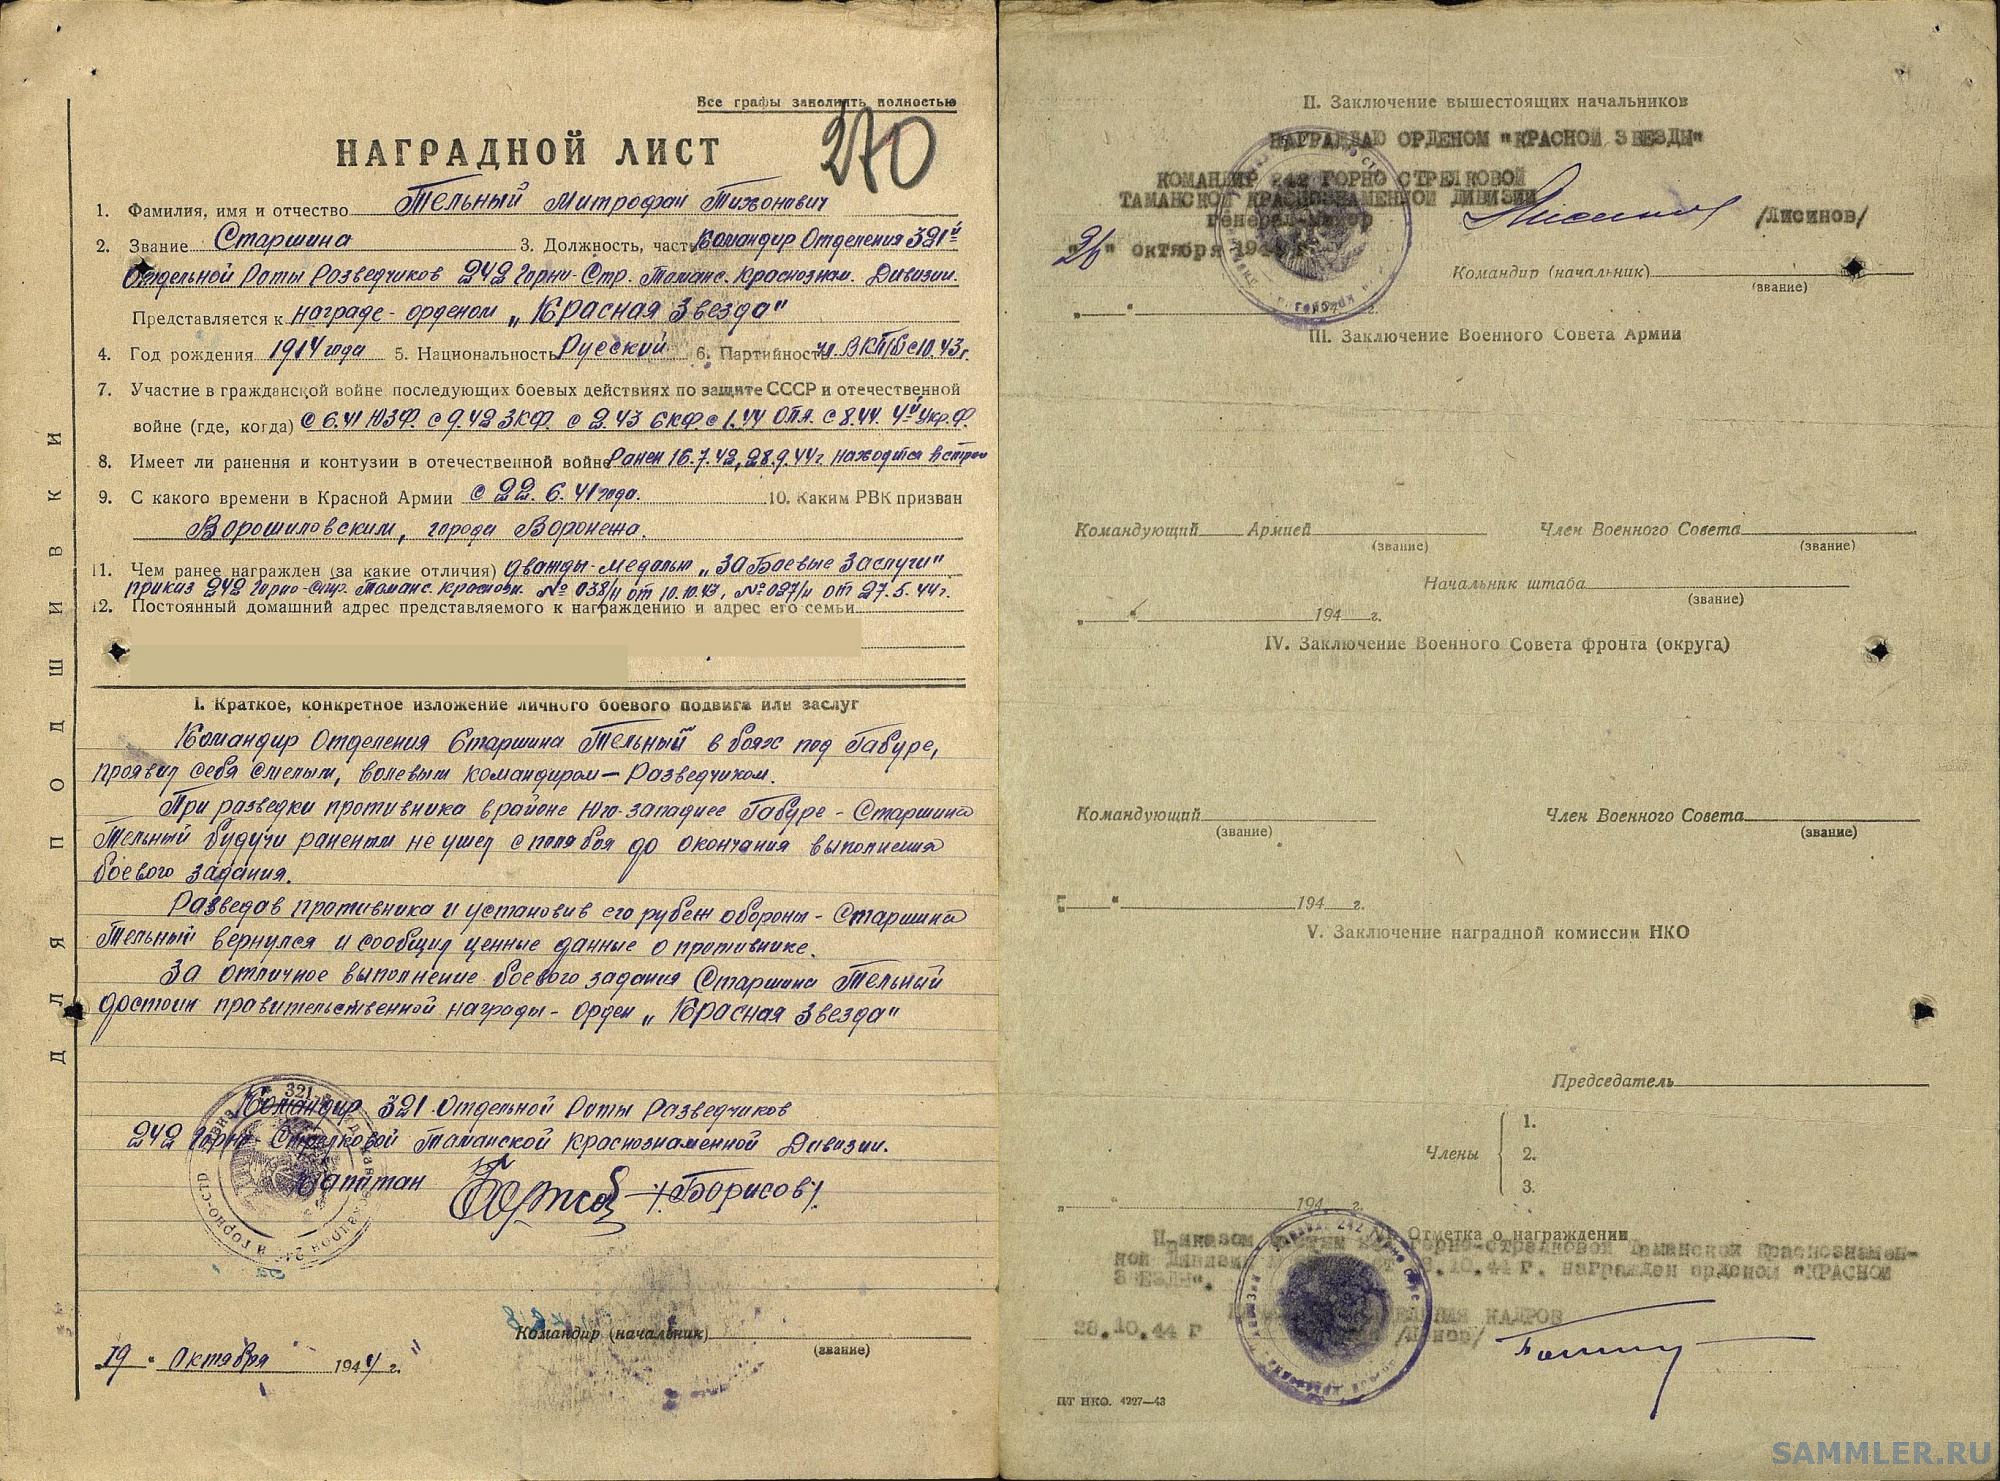 Все графы заполнять полностью
270
НАГРАДНОЙ ЛИСТ
1. Фамилия, имя и отчество Тельный Митрофан Тихонович
2. Звание Старшина 3. Должность, часть Командир Отделения 321й
Отдельной Роты Разведчиков 242 Горно-Стр. Таманс. Краснознам. Дивизии.
Представляется к награде - орденом „Красная Звезда"
4. Год рождения 1914 года 5. Национальность Русский 6. Партийность чл. ВКП/б с 10.43 г.
7. Участие в гражданской войне последующих боевых действиях по защите СССР и отечественной
войне (где, когда) с 6.41 ЮЗФ. с 9.42 ЗКФ. с 2.43 СКФ. с 1.44 ОПА. с 8.44. 4й Укр. Ф.
8. Имеет ли ранення и контузии в отечественной войне Ранен 16.7.42, 28.9.44г. находится в строю
9. С какого времени в Красной Армии с 22.6.41 года. 10. Каким РВК призван
Ворошиловским, города Воронежа.
11. Чем ранее награжден (за какие отличия) дважды-медалью „За Боевые Заслуги"
приказ 242 Горно-Стр. Таманс. Краснозн. № 038/н от 10.10.43, № 027/н от 27.5.44г.
12. Постоянный домашний адрес представляемого к награждению и адрес его семьи
I. Краткое, конкретное изложение личного боевого подвига или заслуг
Командир Отделения Старшина Тельный в боях под Габуре,
проявил себя смелым, волевым командиром-Разведчиком.
При разведки противника в районе Юго-западнее Габуре - Старшина
Тельный будучи раненым не ушел с поля боя до окончания выполнения
боевого задания.
Разведав противника и установив его рубеж обороны - Старшина
Тельный вернулся и сообщил ценные данные о противнике.
За отличное выполнение боевого задания Старшина Тельный
достоин правительственной награды - орден „Красная Звезда"
Командир 321 Отдельной Роты Разведчиков
242 Горно-Стрелковой Таманской Краснознаменной Дивизии.
Капитан /Борисов/
Командир (начальник)
(звание)
„19" Октября 1944 г.
ДЛЯ ПОДШИВКИ
II. Заключение вышестоящих начальников
НАГРАЖДАЮ ОРДЕНОМ "КРАСНОЙ ЗВЕЗДЫ"
КОМАНДИР 242 ГОРНО СТРЕЛКОВОЙ
ТАМАНСКОЙ КРАСНОЗНАМЕННОЙ ДИВИЗИИ
генерал-майор /Лисинов/
"26" октября 1944 г.
Командир (начальник)
(звание)
„ " 194 г.
III. Заключение Военного Совета Армии
Командующий Армией Член Военного Совета
(звание) (звание)
Начальник штаба
(звание)
„ " 194 г.
IV. Заключение Военного Совета фронта (округа)
Командующий Член Военного Совета
(звание) (звание)
„ " 194 г.
V. Заключение наградной комиссии НКО
Председатель
1.
Члены 2.
3.
„ " 194 г.
Отметка о награждении
Приказом горно-стрелковой Таманской Краснознамен-
ной Дивизии .10.44 г. награжден орденом "КРАСНОЙ
ЗВЕЗДЫ".
КАДРОВ
28.10.44 г
ПТ НКО. 4227—43
SAMMLER.RU